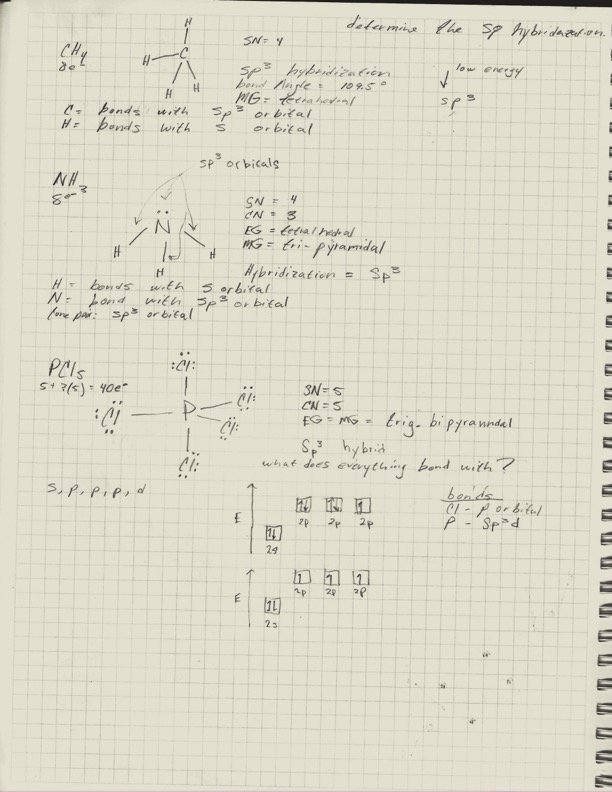 determine the sp hybridization
CH4
8e-
H
H C
H H
SN= 4
sp3 hybridization
bond Angle = 109.5°
MG= tetrahedral
low energy
sp3
C= bonds with sp3 orbital
H= bonds with s orbital
sp3 orbitals
NH3
8e-
N
H H
H
SN = 4
CN = 3
EG= tetrahedral
MG= tri-pyramidal
Hybridization = sp3
H= bonds with s orbital
N= bond with sp3 orbital
lone pair: sp3 orbital
PCl5
5+7(5) = 40e-
Cl
Cl P Cl
Cl
Cl
SN=5
CN=5
EG= MG= trig- bipyramidal
sp3 hybrid
what does everything bond with?
s, p, p, p, d
bonds
Cl - p orbital
P - sp3d
E
2p 2p 2p
2s
E
2p 2p 2p
2s